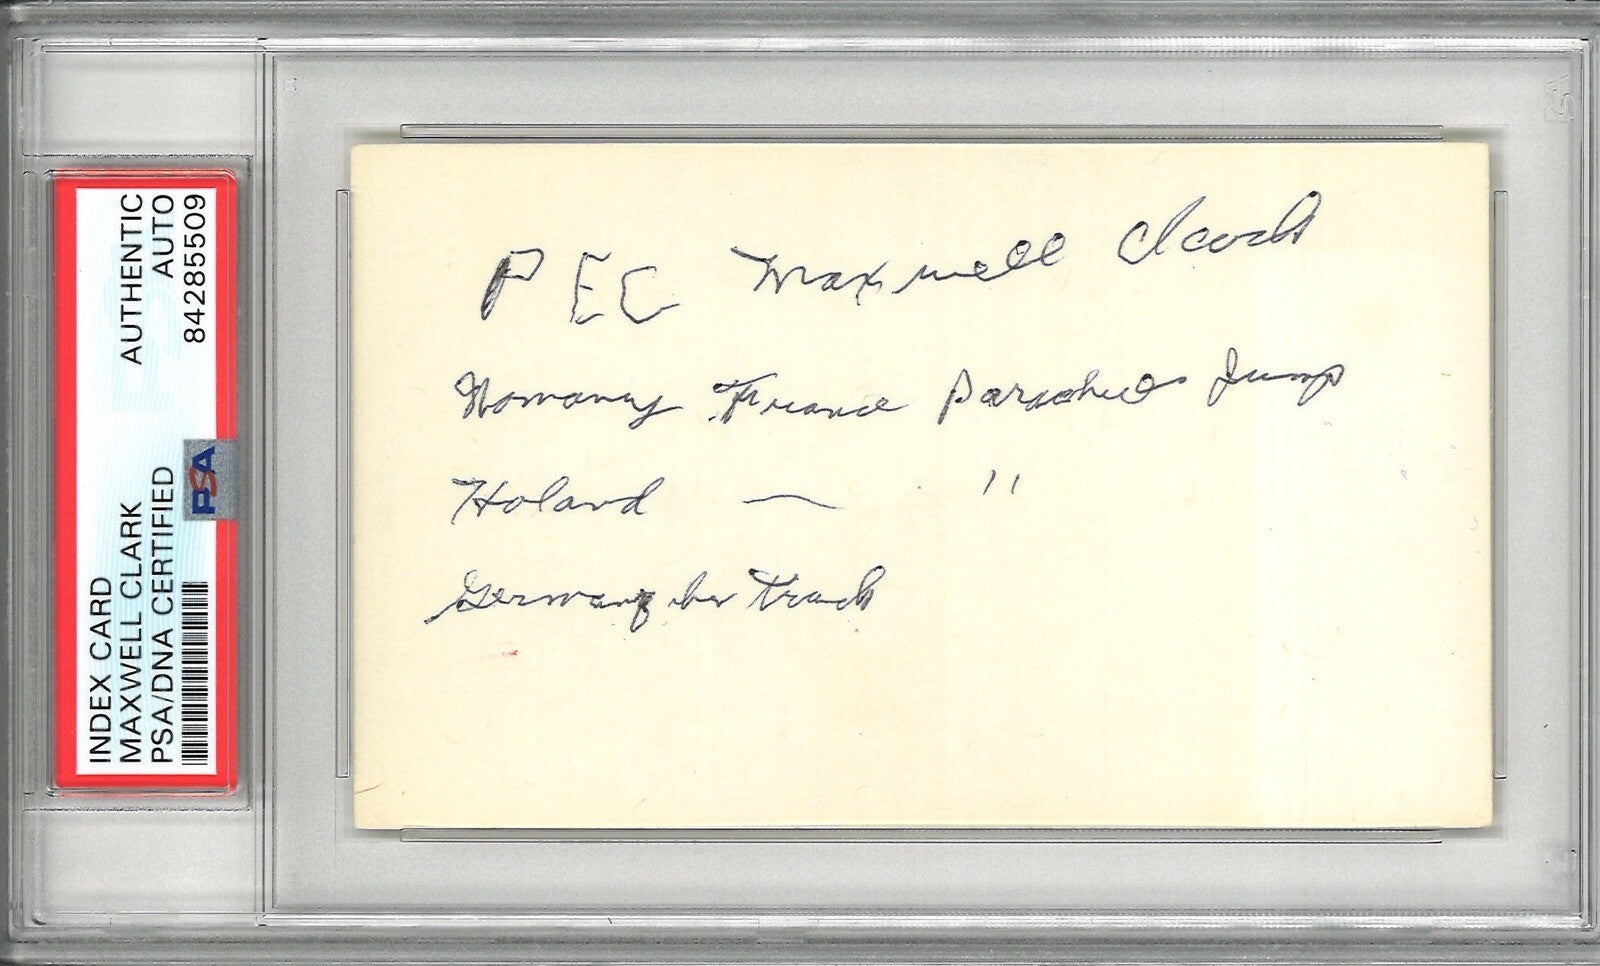 INDEX CARD
MAXWELL CLARK
PSA/DNA CERTIFIED
AUTHENTIC
AUTO
84285509
PSA
Maxwell Clark
Nomany France Parachute Jump
Holand — "
Germany by Truck